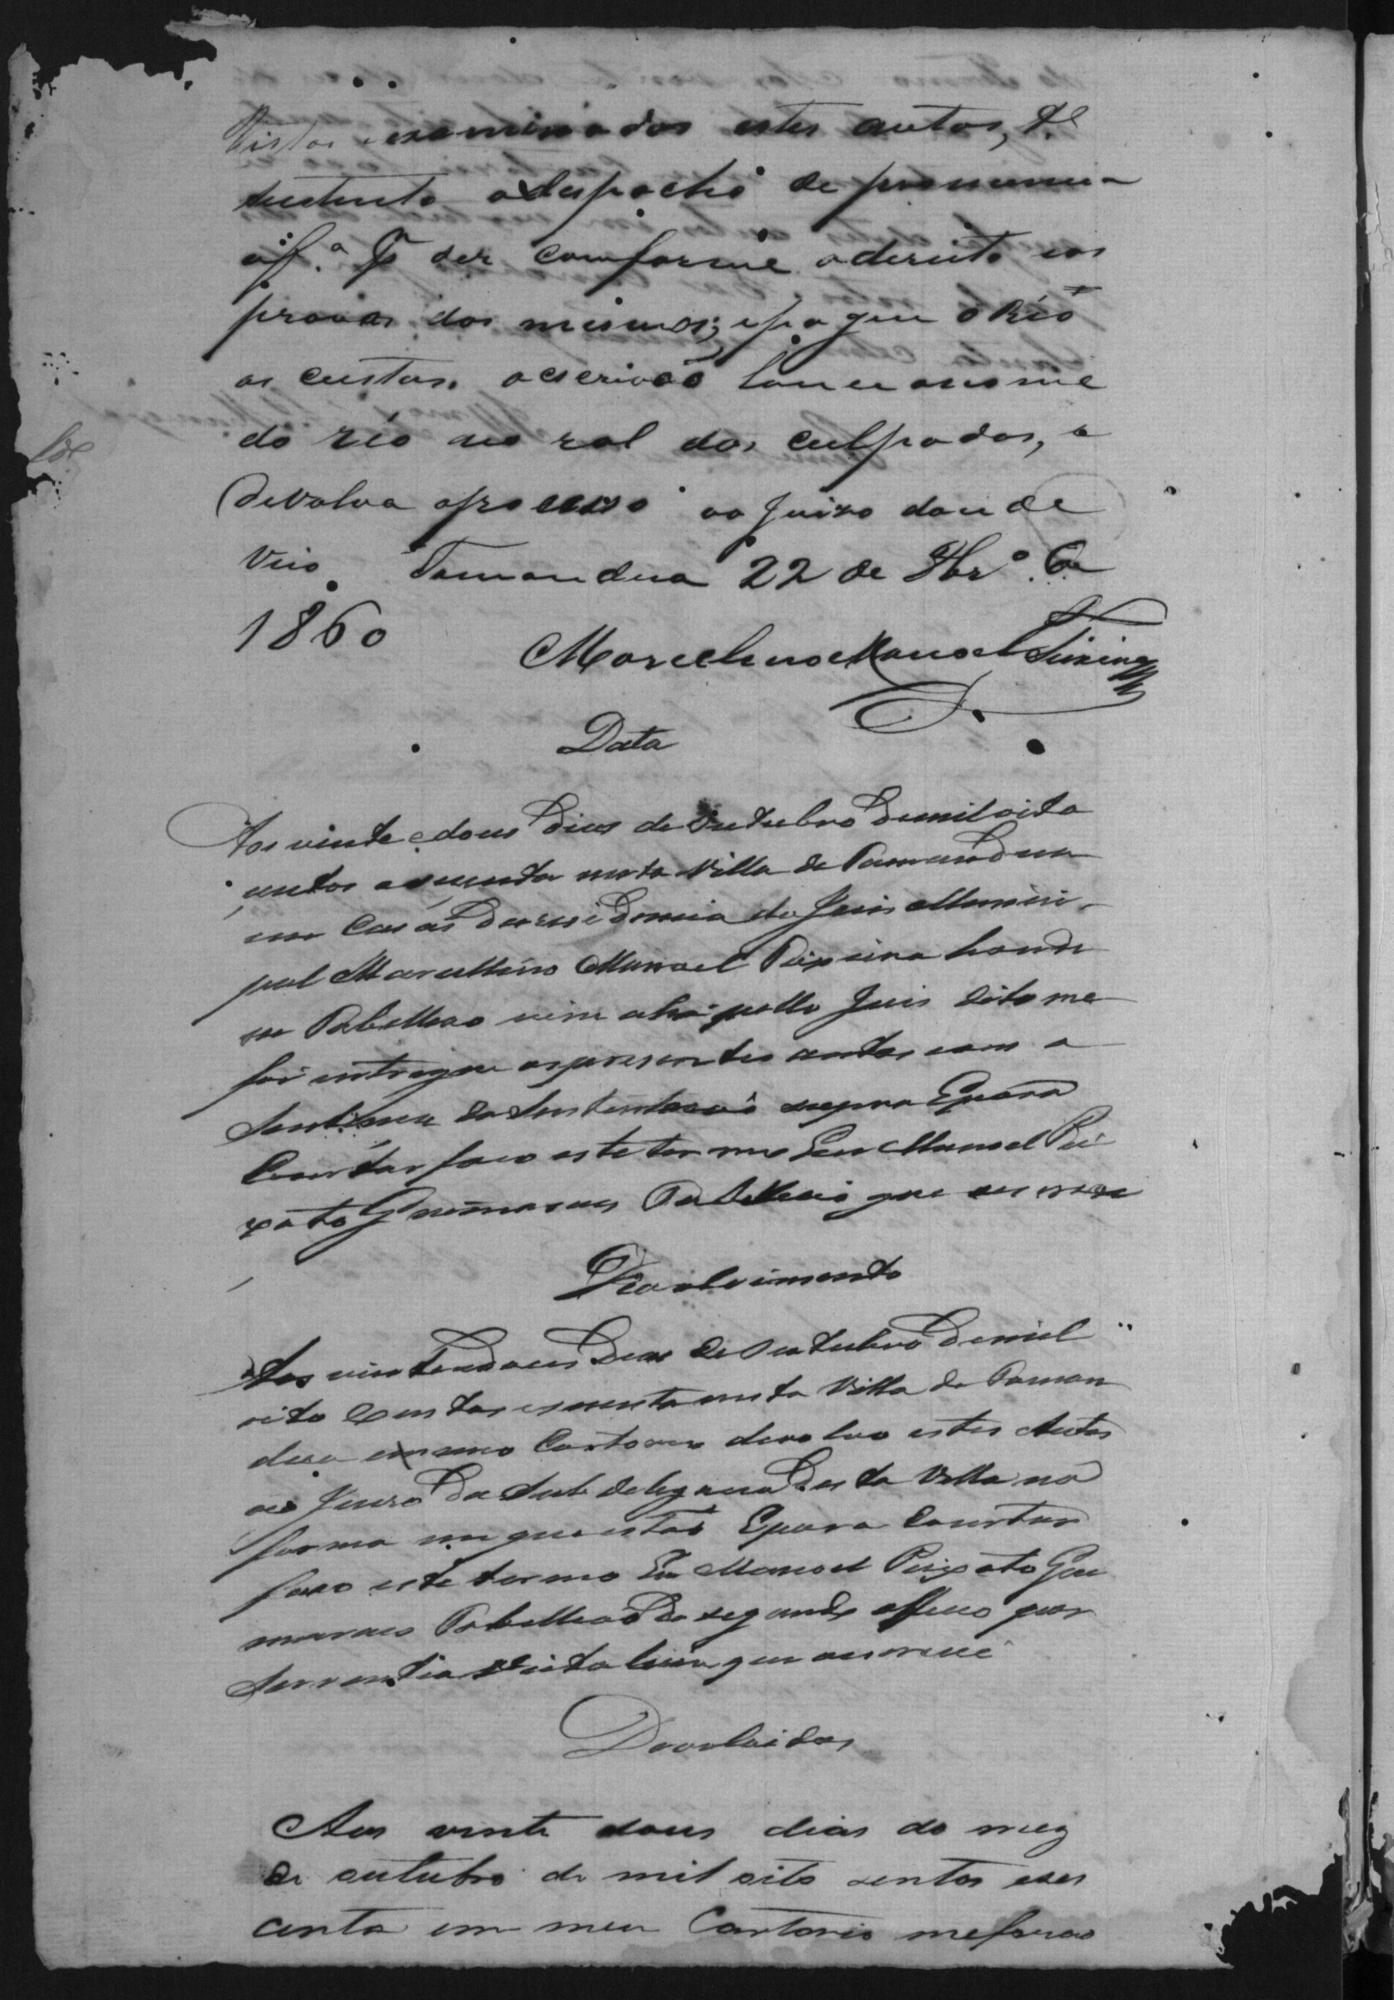 Vistos e examinados estes autos, &ª
sustento o despacho de pronuncia
a f.ª por ser conforme o dereito e as
provas dos mesmos; e pague o Réo
as custas. o escrivaõ lance o nome
do réo no rol dos culpados, e
devolva o processo ao Juizo donde
veio. Tamandua 22 de 8br.º de
1860
Marcelino Manoel Teixeira
Data
Aos vinte e dous Dias de Outubro Demil oito
centos e secenta nesta Villa de Tamandua
em Casas Daresidencia do Juis Munici
pal Marcellino Manoel Teixeira honde
eu Tabelleao vim ahi pello Juis dito me
foi entregue os presentes autos com a
Sentença da Sustentacaõ supra Epara
Constar faco este termo Eu Manoel Pei
xoto Guimaraes Tabelleaõ que escrevi
Devolvimento
Aos vinte e dous Dias de Outubro Demil
oito Centos esecenta nesta Villa de Taman
dua em meu Cartorio devolvo estes Autos
ao Juizo Da Subdelegacia Desta Villa na
forma em que estaõ Epara Constar
faco este termo Eu Manoel Peixoto Gui
maraes Tabelleaõ Do segundo officio por
Serventia Vitalicia que escrevi
Devolvidos
Aos vinte dous dias do mez
de outubro de mil oito sentos eses
centa em meu Cartorio meforaõ